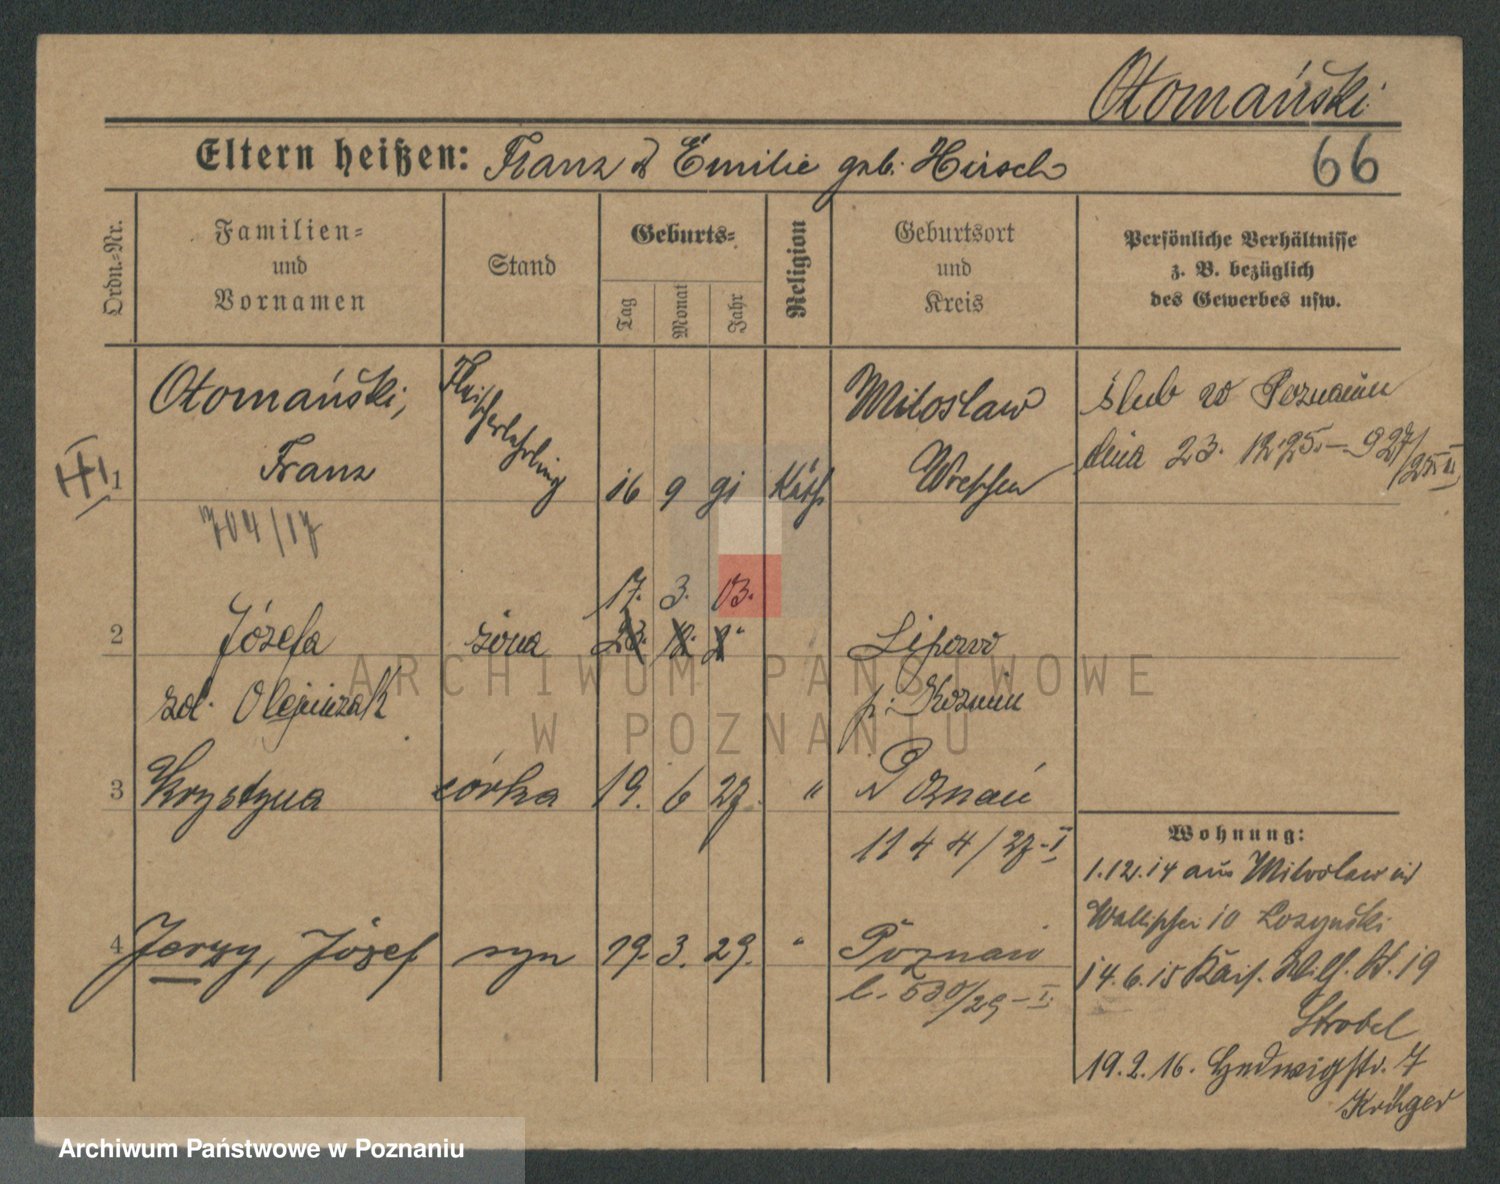 Otomański
Eltern heißen: Franz & Emilie geb. Hirsch
66
Ordn.-Nr.
Familien-
und
Vornamen
Stand
Geburts-
Tag
Monat
Jahr
Religion
Geburtsort
und
Kreis
Persönliche Verhältnisse
z. B. bezüglich
des Gewerbes usw.
1
Otomański,
Franz
Fleischerlehrling
16 9 91 Kath.
Miloslaw
Wreschen
ślub w Poznaniu
dnia 23. 12. 25. – 927/25 II
704/17
2
Józefa
zol. Olejniczak
żona
17. 3. 03.
Lipowo
p. Kozmin
3 Krystyna córka 19. 6 27. " Poznań
1144/27-I
4 Jerzy, Józef syn 19. 3. 29. " Poznań
l. 530/29-I
Wohnung:
1.12.14 aus Miloslaw in
Wallischei 10 Lozynski
14.6.15 Kais. W. 19
Strobel
19.2.16. Hedwigstr. 7
Krüger
ARCHIWUM PAŃSTWOWE
W POZNANIU
Archiwum Państwowe w Poznaniu